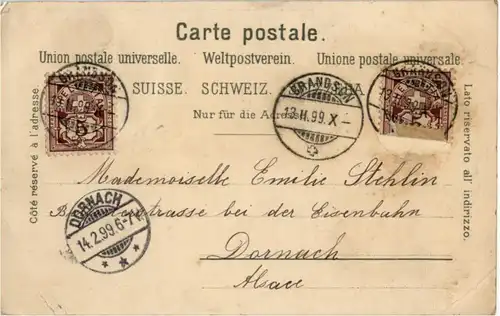 Carte postale.
Union postale universelle. Weltpostverein. Unione postale universale.
SUISSE. SCHWEIZ.
Nur für die
Côté réservé à l'adresse.
Lato riservato all' indirizzo.
GRANDSON
13.II.99.X-
GRANDSON
5
Mademoiselle Emilie Stehlin
bei der Eisenbahn
Dornach
Alsace
DORNACH
14.2.99.6-7